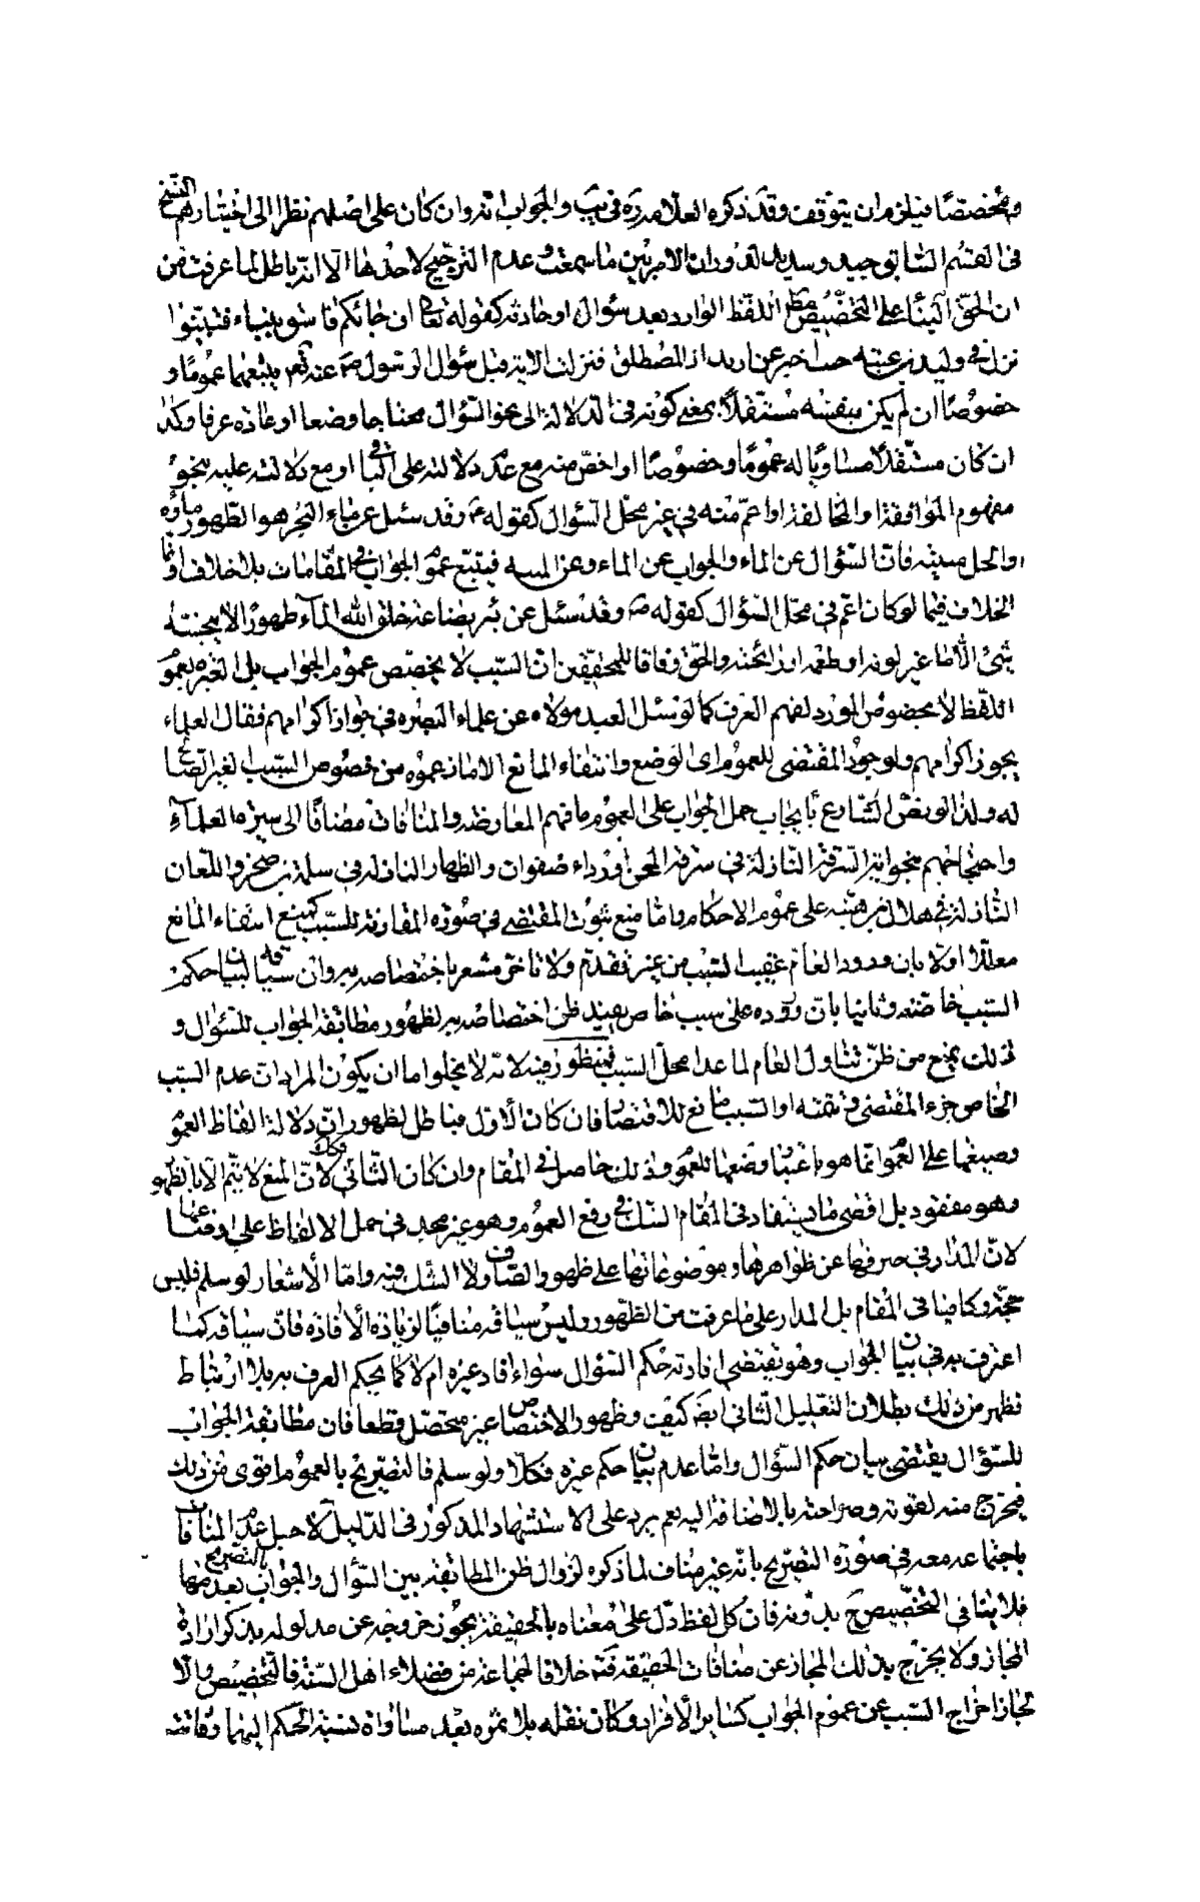 ومخصصًا فيلزم ان يتوقف وقد ذكره العلامة ره فى يب والجواب انه وان كان على اصلهم نظرا الى اختيارهم النسخ
فى القسم السابق جيد وسديد لدوران الامر بين ما سمعت وعدم الترجيح لاحدهما الا انه باطل لما عرفت من
ان الحق البناء على التخصيص اللفظ الوارد بعد سؤال او حادثة كقوله تعالى ان جائكم فاسق بنباء فتبينوا
نزل فى وليد بن عقبة اخبر عن ارتداد المصطلق فنزلت الاية قبل سؤال الرسول ص عنه يتبعهما عمومًا و
خصوصًا ان لم يكن بنفسه مستقلًا بمعنى كونه فى الدلالة الى نحو السؤال محتاجا وضعا او عادة عرفا وكذا
ان كان مستقلًا مساويًا له عمومًا وخصوصًا او اخص منه مع عدم دلالته على الباقى او مع دلالته عليه بنحو
مفهوم الموافقة او المخالفة او اعم منه فى غير محل السؤال كقوله ع وقد سئل عن ماء البحر هو الطهور ماؤه
والحل ميتته فان السؤال عن الماء والجواب عن الماء وعن الميتة فيتبع عموم الجواب فى المقامات بلا خلاف وانما
الخلاف فيما لو كان اعم فى محل السؤال كقوله ص وقد سئل عن بئر بضاعة خلق الله الماء طهورًا لا ينجسه
شئ الا ما غير لونه او طعمه او رائحته والحق وفاقا للمحققين ان السبب لا يخصص عموم الجواب بل العبرة بعموم
اللفظ لا بخصوص المورد لفهم العرف كما لو سئل العبد مولاه عن علماء البصرة فى جواز اكرامهم فقال العلماء
يجوز اكرامهم ولوجود المقتضى للعموم اى الوضع وانتفاء المانع الا ما زعموه من خصوص السبب الغير الصالح
له ولذا لو نص الشارع بايجاب حمل الجواب على العموم ما فهم المعارضة والمنافات مضافًا الى سيرة العلماء
واحتجاجهم بنحو اية السرقة النازلة فى سرقة المجن او رداء صفوان والظهار النازلة فى سلمة بن صخر واللعان
النازلة فى هلال بن امية على عموم الاحكام واما منع ثبوت المقتضى فى صورة المقارنة للسبب كمنع انتفاء المانع
معللا اولا بان ورود العام عقيب السبب من غير تقدم ولا تاخر مشعر باختصاصه به وان سياقه لبيان حكم
السبب خاصته وثانيا بان وروده على سبب خاص يفيد ظن اختصاصه به لظهور مطابقة الجواب للسؤال و
ذلك يمنع من ظن تناول العام لما عدا محل السبب فمنظور فيه لانه لا يخلو اما ان يكون المراد ان عدم السبب
الخاص جزء المقتضى فى تتمته او السبب مانع للاقتضاء فان كان الاول فباطل لظهور ان دلالة الفاظ العموم
وصيغها على العموم انما هو باعتبار وضعها للعموم وذلك حاصل فى المقام وان كان الثانى فكذلك لان المنع لا يتم الا بالظهور
وهو مفقود بل اقصى ما يستفاد فى المقام الشك فى رفع العموم وهو غير مجد فى حمل الالفاظ على اوضاعها
لان المدار فى صرفها عن ظواهرها وموضوعاتها على ظهور الصارف ولا الشك فيه واما الاشعار لو سلم فليس
حجة وكافيا فى المقام بل المدار على ما عرفت من الظهور وليس سياقه منافيًا لزيادة الافادة فان سياقه كما
اعترفت به فى بيان الجواب وهو يقتضى افادته حكم السؤال سواء افاد غيره ام لا كما يحكم العرف به بلا ارتباط
فظهر من ذلك بطلان التعليل الثانى ايضا كيف وظهور الاختصاص غير متحصل قطعا فان مطابقة الجواب
للسؤال يقتضى بيان حكم السؤال واما عدم بيان حكم غيره فكلا ولو سلم فالتصريح بالعموم اقوى من ذلك
فيخرج منه لقوته وصراحته بالاضافة اليه نعم يرد على الاستشهاد المذكور فى الدليل لاجل عدم المنافات
باجتماعه معه فى صورة التصريح بانه غير مناف لما ذكره لزوال ظن المطابقة بين السؤال والجواب بعد التصريح بها
فلا ينافى التخصيص ح بدونه فان كل لفظ دل على معناه بالحقيقة يجوز خروجه عن مدلوله بذكر ارادة
المجاز ولا يخرج بذلك المجاز عن منافات الحقيقة خلافا لجماعة من فضلاء اهل السنة فالتخصيص والا
لجاز اخراج السبب عن عموم الجواب كساير الافراد وكان نقله بلا ثمرة بعد مساواة نسبة الحكم اليهما وفاتته